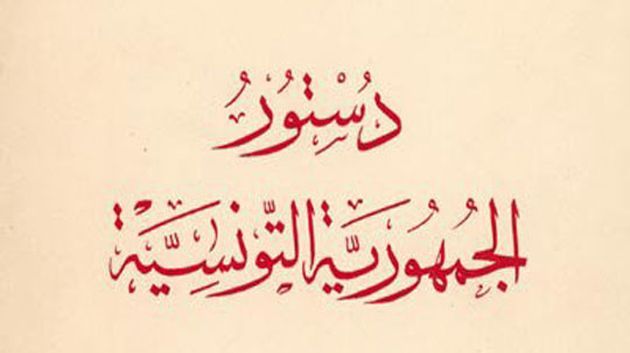 دُسْتُورُ
الجُمهُورِيَّة التّونسِيَّة